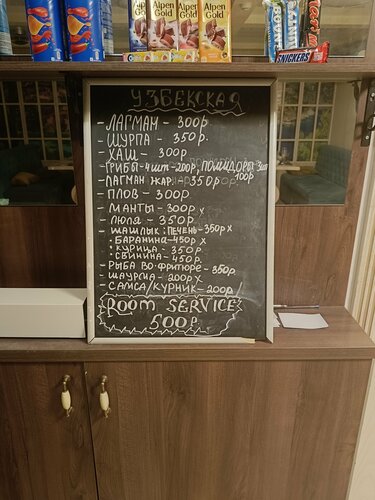 Alpen Gold
Alpen Gold
Alpen Gold
SNICKERS
УЗБЕКСКАЯ
- ЛАГМАН - 300р.
- ШУРПА - 350р.
- ХАШ - 300р
- ГРИБЫ - 4 шт - 200р, ПОМИДОРЫ 3шт 100р.
- ЛАГМАН ЖАР. 350р.
- ПЛОВ - 300р
- МАНТЫ - 300р. х
- ЛЮЛЯ - 350р.
- ШАШЛЫК: ПЕЧЕНЬ - 350р х
• БАРАНИНА - 450р х
• КУРИЦА - 350р.
• СВИНИНА - 450р.
- РЫБА ВО ФРИТЮРЕ - 350р.
- ШАУРМА - 200р х
- САМСА/КУРНИК - 200р/
ROOM SERVICE
500р.